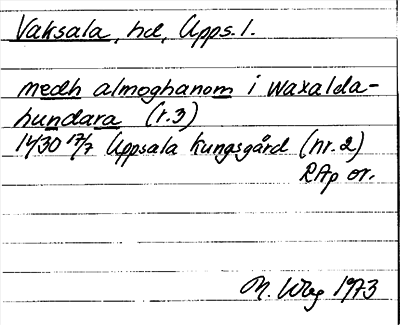 Vaksala, hd, Upps. l.
medh almoghanom i waxalda-
hundara (r.3)
1430 17/7 Uppsala kungsgård (nr.2)
RAp or.
M. Wbg 1973